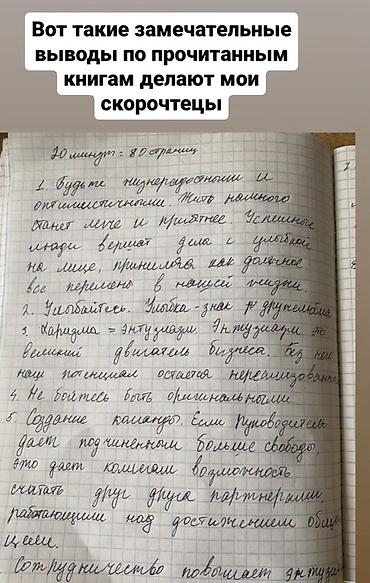 Вот такие замечательные
выводы по прочитанным
книгам делают мои
скорочтецы
20 минут = 80 страниц
1. Будьте жизнерадостными и
оптимистичными. Жить намного
станет легче и приятнее. Успешные
люди вершат дела с улыбкой
на лице, принимая как должное
все перемены в нашей жизни.
2. Улыбайтесь. Улыбка - знак дружелюбия
3. Харизма = энтузиазм. Энтузиазм это
великий двигатель бизнеса. Без него
наш потенциал остается нереализован
4. Не бойтесь быть оригинальными
5. Создание команды. Если руководитель
дает подчиненным больше свободы,
это дает коллегам возможность
считать друг друга партнерами,
работающими над достижением общей
цели.
Сотрудничество повышает энтузи